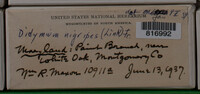 UNITED STATES NATIONAL HERBARIUM
816992
Didymium nigripes (Link) Fr.
Maryland: Paint Branch, near
White Oak, Montgomery Co
Wm R. Maxon 10911 June 13, 1937.